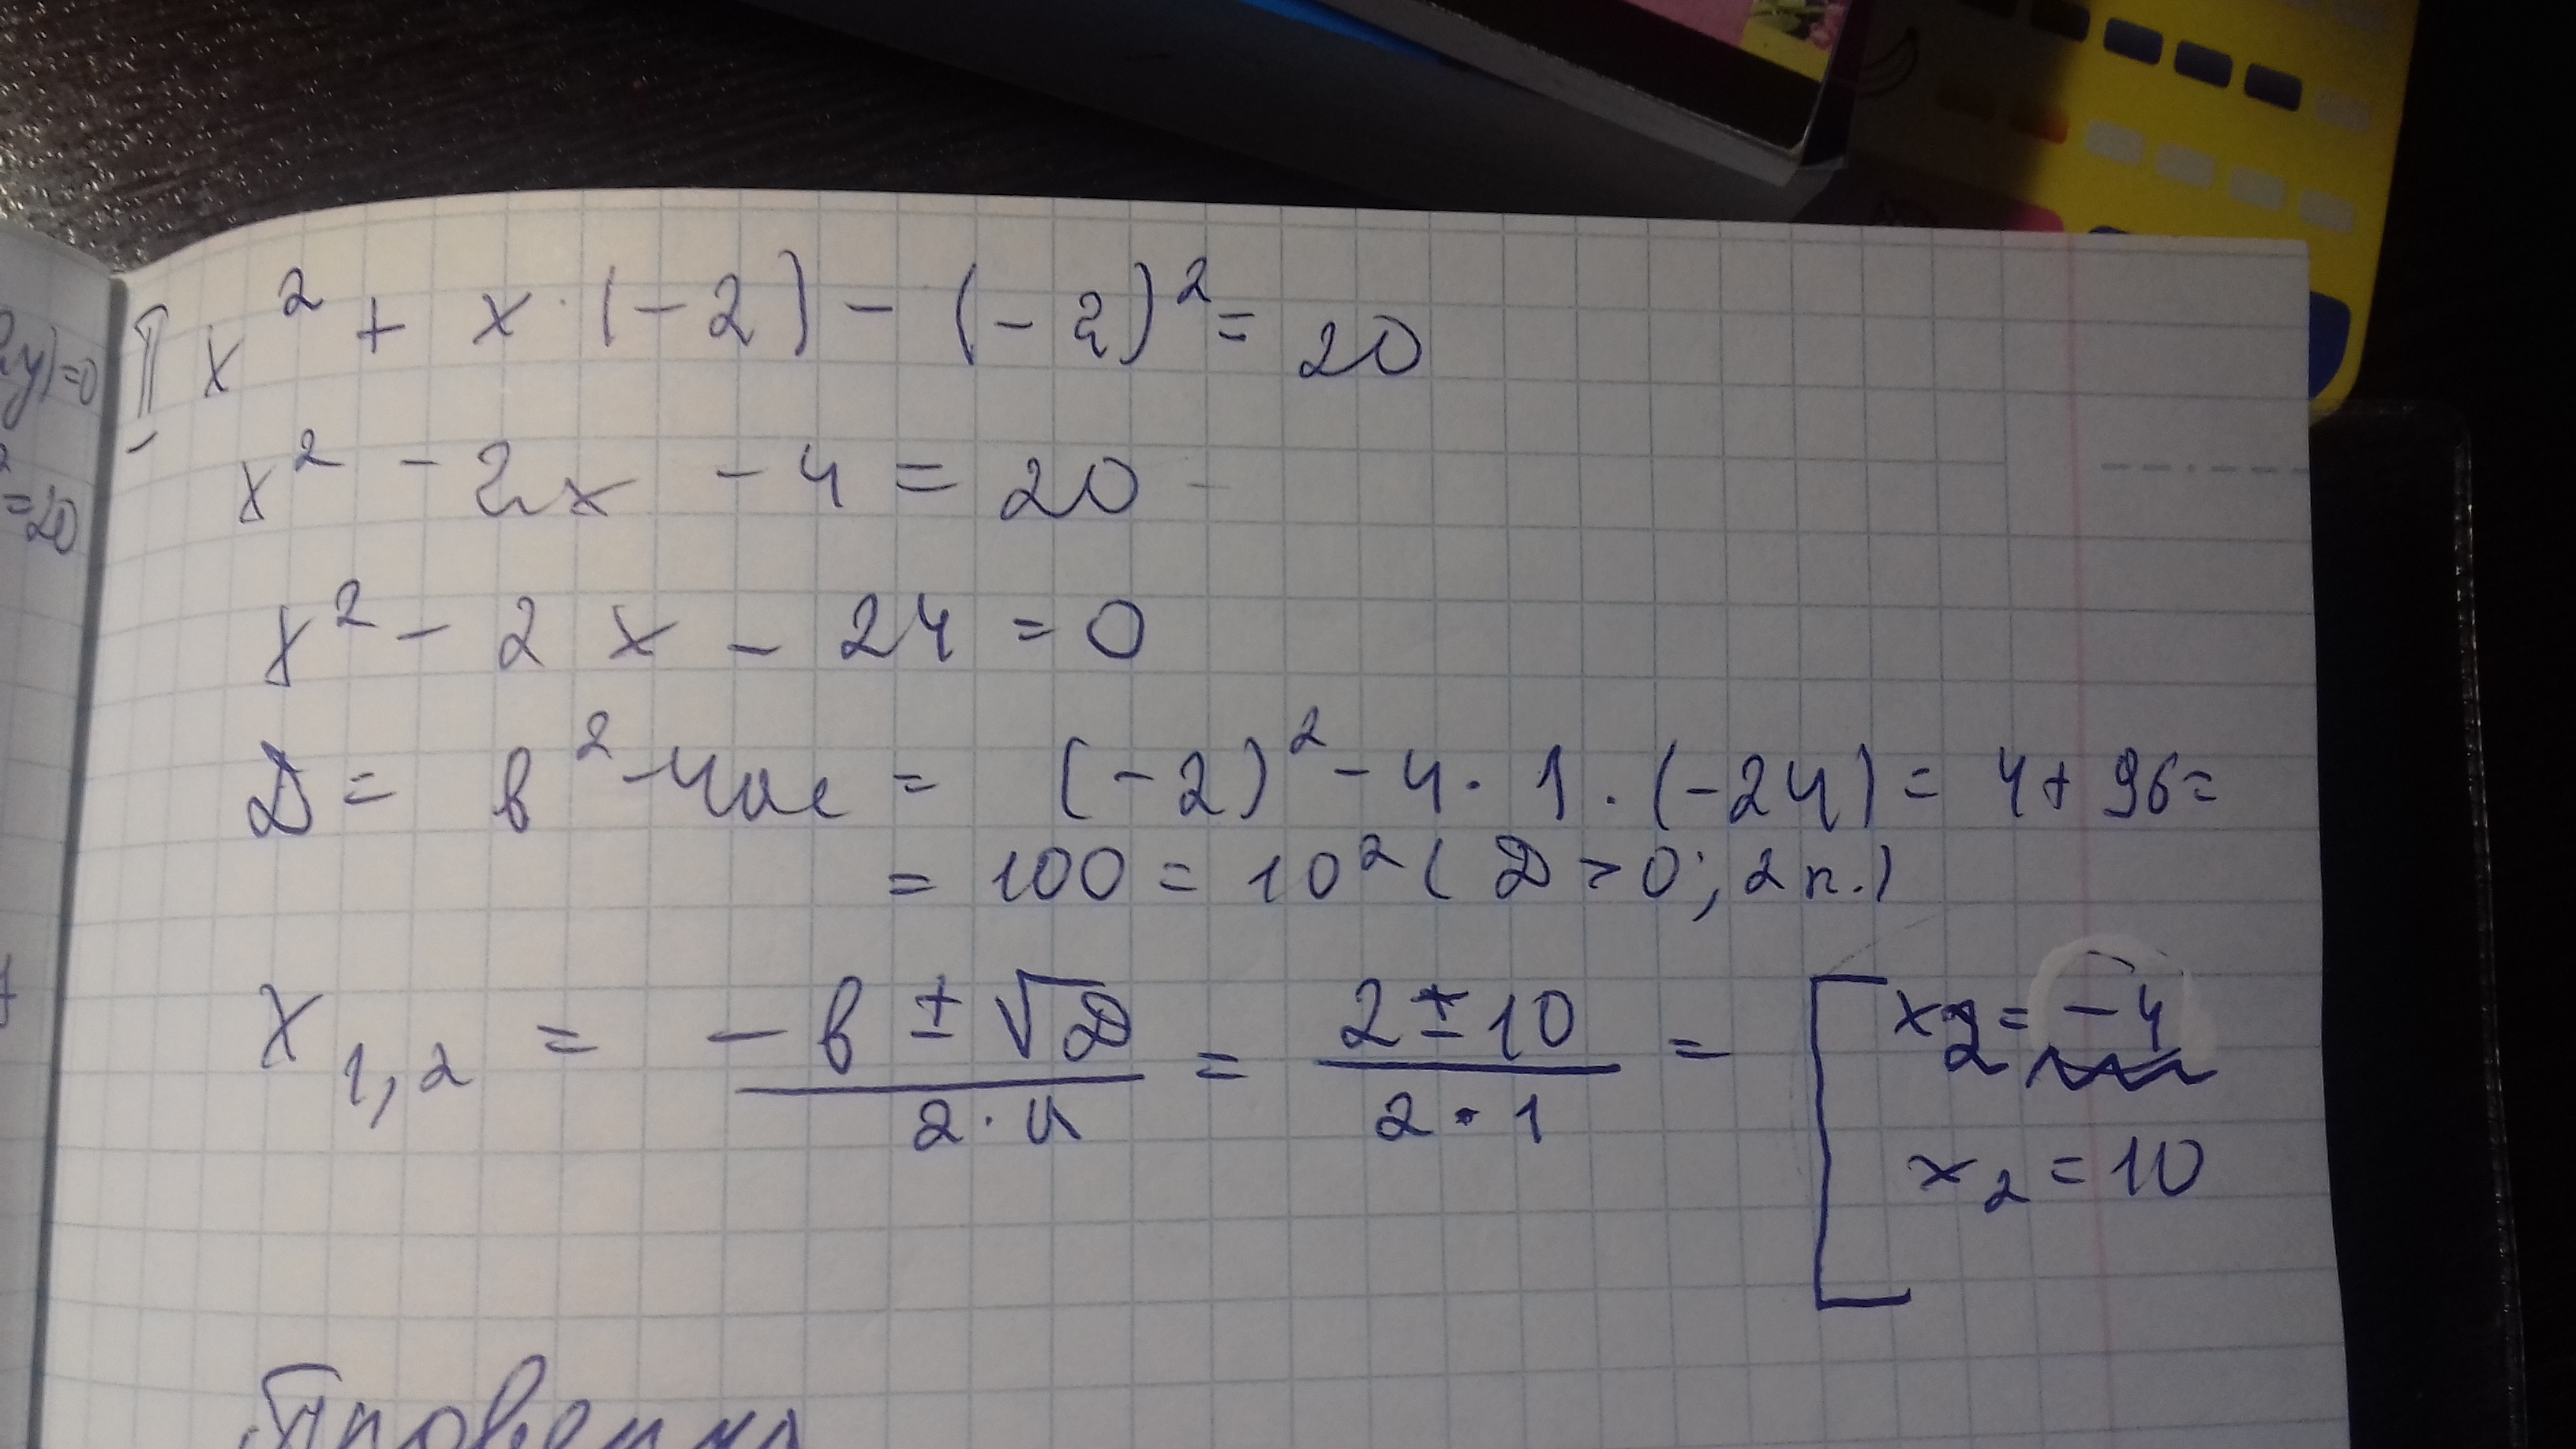 ly)=0
2
=20
II x² + x · (-2) - (-2)² = 20
x² - 2x - 4 = 20
x² - 2x - 24 = 0
D = в² - 4ac = (-2)² - 4 · 1 · (-24) = 4 + 96 =
= 100 = 10² ( D > 0; 2 п.)
x1,2 = (-в ± √D)/(2·a) = (2 ± 10)/(2 · 1) = [ x2 = -4
x2 = 10
Проверка